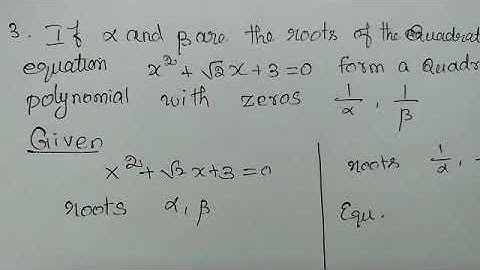 3. If α and β are the roots of the Quadrat
equation x² + √2x + 3 = 0 form a Quadr
polynomial with zeros 1/α, 1/β
Given
x² + √2x + 3 = 0
roots α, β
roots 1/α,
Equ.